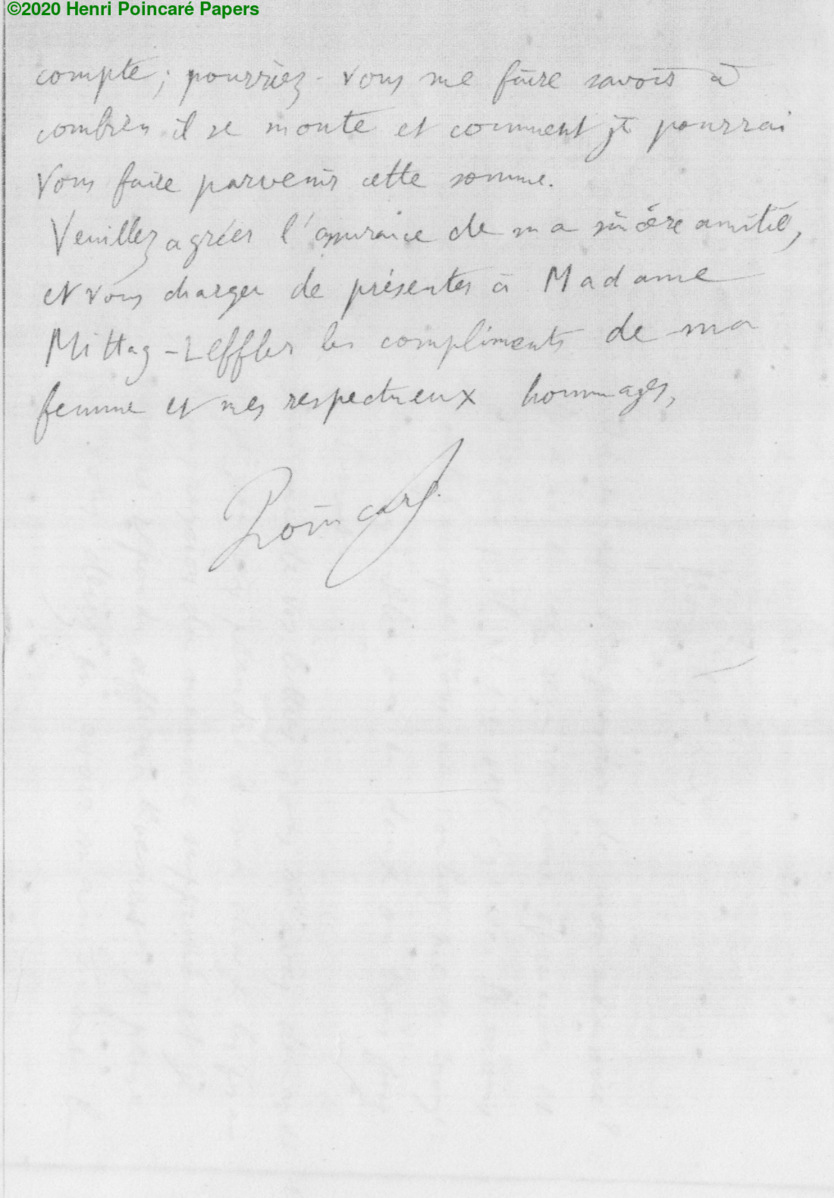 ©2020 Henri Poincaré Papers
compte; pourriez-vous me faire savoir à
combien il se monte et comment je pourrai
vous faire parvenir cette somme.
Veuillez agréer l'assurance de ma sincère amitié,
et vous charger de présenter à Madame
Mittag-Leffler les compliments de ma
femme et mes respectueux hommages,
Poincaré